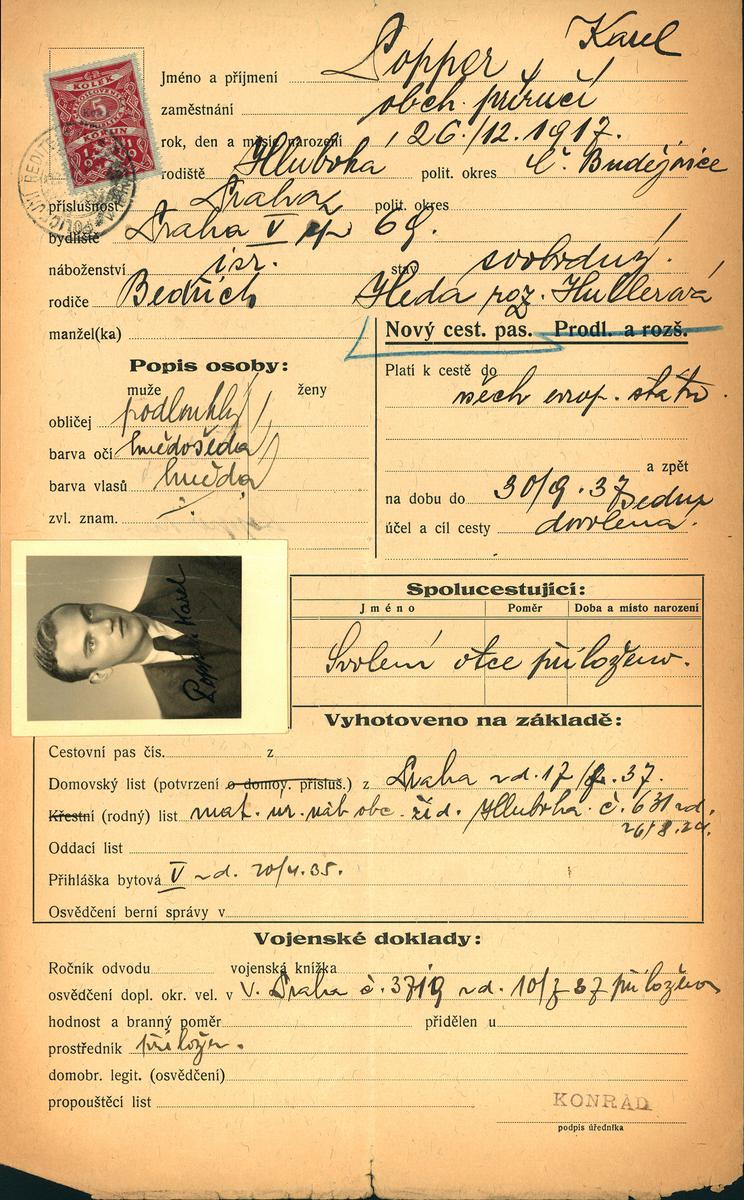 Popper Karel
Jméno a příjmení
KOLEK
5
KORUN
1919
zaměstnání obch. příručí
rok, den a měsíc narození 26./12.1917.
rodiště Hluboká polit. okres Č. Budějovice
příslušnost Praha polit. okres
bydliště Praha V čp 69.
náboženství isr. stav svobodný.
rodiče Bedřich Heda roz. Hullerová
manžel(ka)
Nový cest. pas. Prodl. a rozš.
Popis osoby:
muže ženy
obličej podlouhlý
barva očí hnědošedá
barva vlasů hnědá
zvl. znam.
Platí k cestě do
všech evrop. států.
a zpět
na dobu do 30/9.37
účel a cíl cesty dovolená.
Popper Karel
Spolucestující:
Jméno Poměr Doba a místo narození
Svolení otce přiloženo.
Vyhotoveno na základě:
Cestovní pas čís. z
Domovský list (potvrzení o domov. přísluš.) z Praha z d. 17/ .37.
Křestní (rodný) list mat. úř. náb. obc. žid. Hluboká č. 631 z d.
26/8.24.
Oddací list
Přihláška bytová V z d. 20/4.35.
Osvědčení berní správy v
Vojenské doklady:
Ročník odvodu vojenská knížka
osvědčení dopl. okr. vel. v V. Praha č. 37/9 z d. 10/7 37 přiloženo
hodnost a branný poměr přidělen u
prostředník příložen.
domobr. legit. (osvědčení)
propouštěcí list
KONRÁD
podpis úředníka